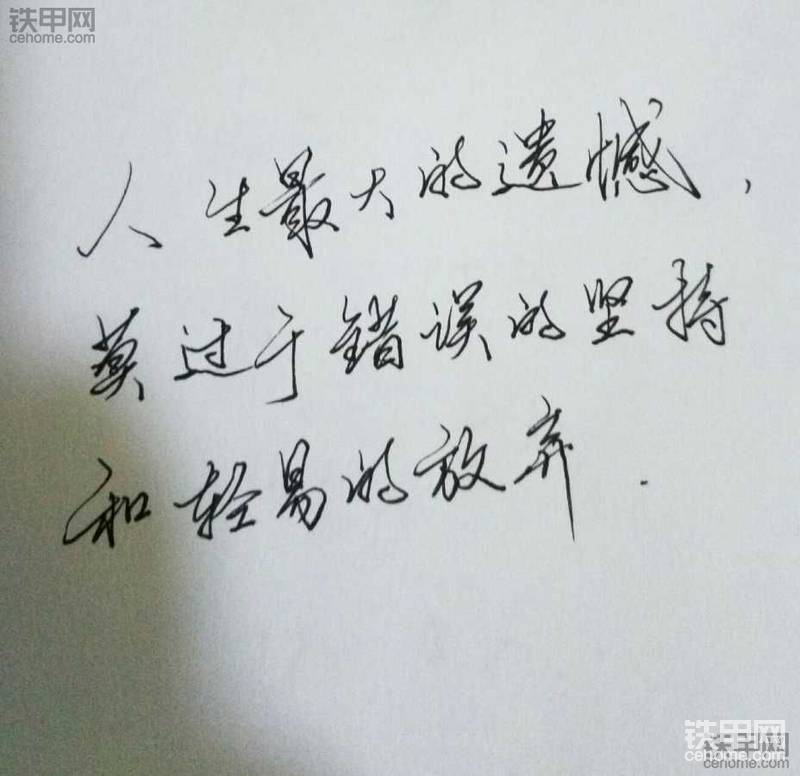 铁甲网
cehome.com
人生最大的遗憾，
莫过于错误的坚持
和轻易的放弃.
铁甲网
cehome.com
铁甲网
cehome.com